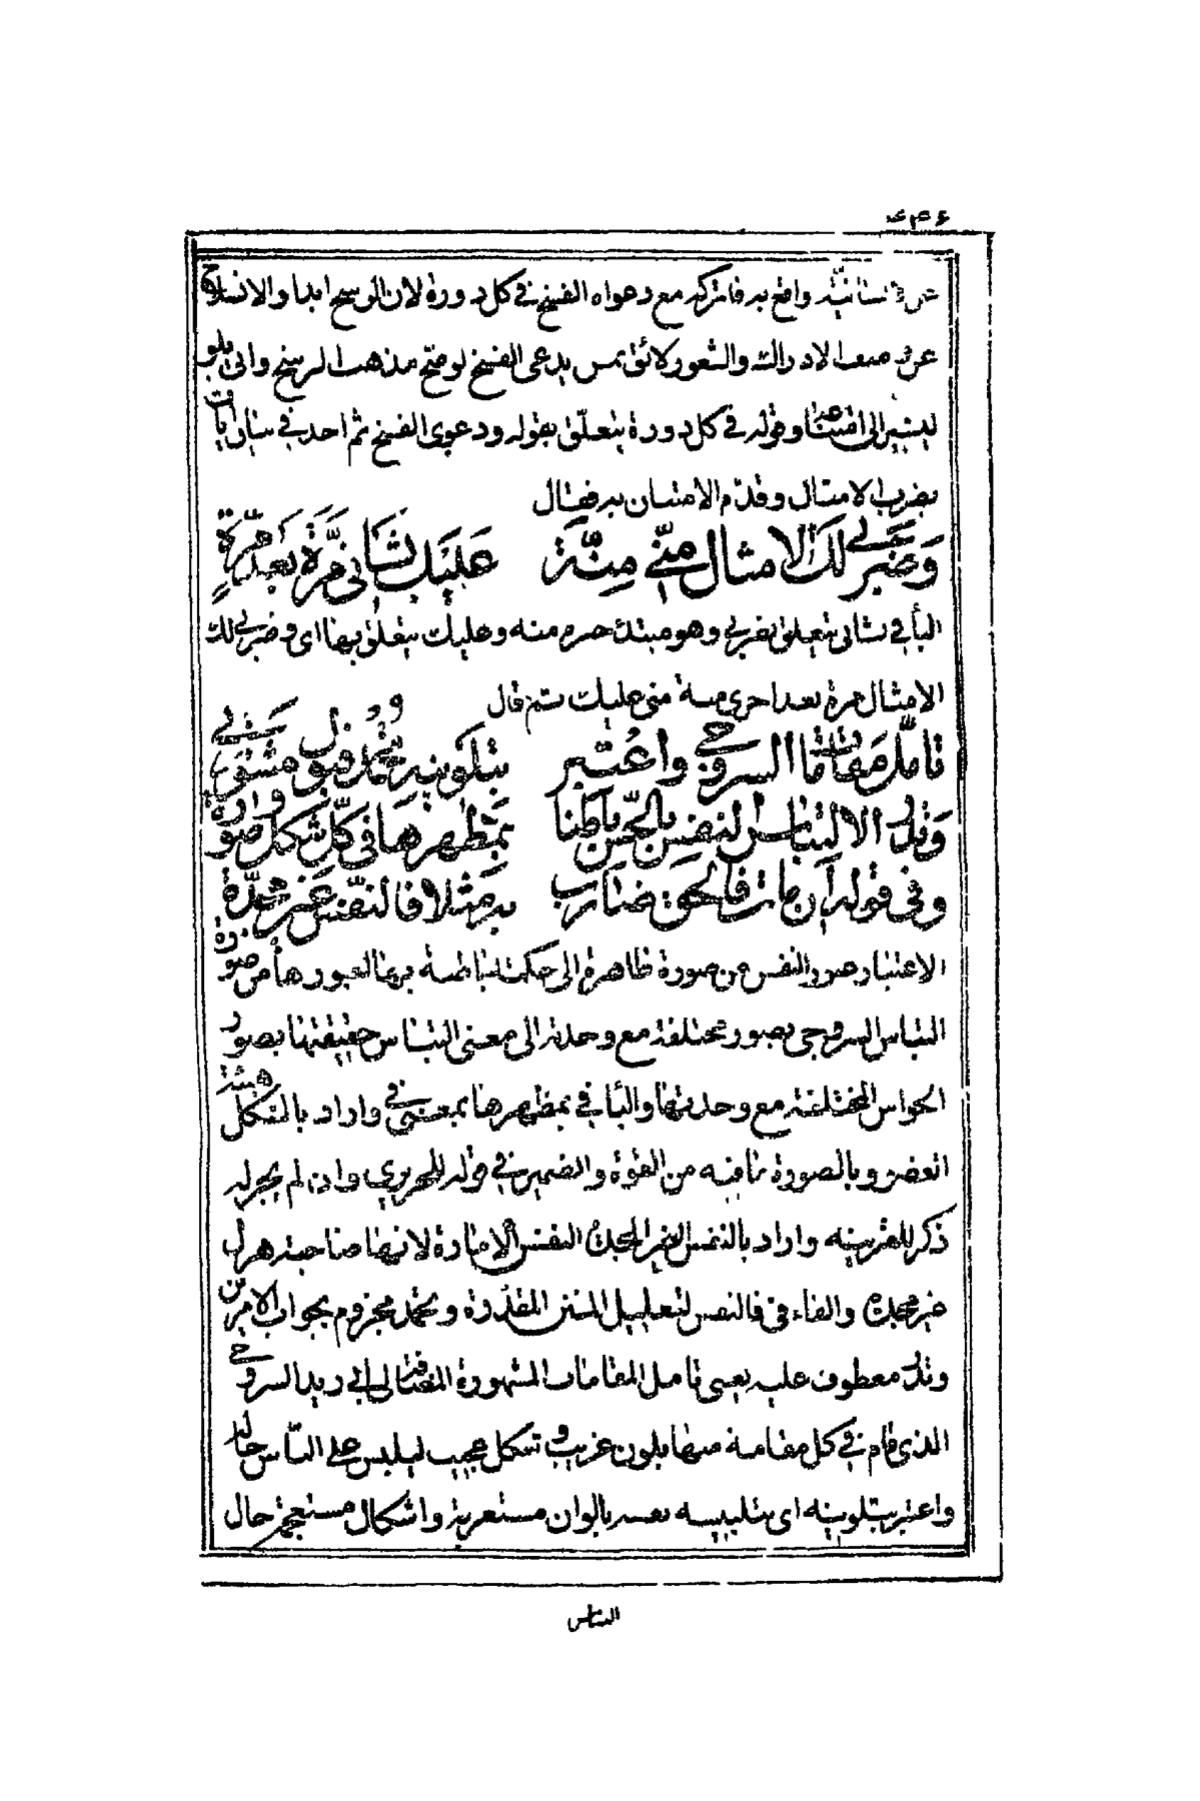 واقع به فاتركه مع دعواه الفسخ في كل دورة لان الرسخ ابدا والانسلاخ
عن الادراك والشعور لائق بمن يدعى الفسخ لوضح مذهب الرسخ وانى
يشير الى وقوله في كل دورة يتعلق بقوله ودعوى الفسخ ثم اخذ في بيان
بضرب الامثال وقدم الامتنان به فقال
وَضَربي لك الامثال منّي مِنّةٌ عَلَيك بشأني مرّة بعد مرّةٍ
البأ في بشانى يتعلق بضربي وهو مبتدء منه وعليك يتعلق بها اى وضربي لك
الامثال مرة بعد اخرى منة منى عليك ثم قال
تأمّل مَقاماتِ السروجي واعتبر بتلوينه تحمد قبول مشورتي
وتدر التباس النفس بالحس باطنا بمظهرها في كل شكل وصورة
وفي قوله ان مان فالحق ضارب به مثلا فالنفس غير مجدّة
الاعتبار عبور النفس من صورة ظاهرة الى حكمة باطنة بها العبور هنا من صورة
التباس السروجى بصور مختلفة مع وحدته الى معنى التباس حقيقتها بصور
الحواس المختلفة مع وحدتها والبأ في بمظهرها بمعنى في واراد بالشكل هيئة
العضو وبالصورة ما فيه من القوة والضمير في قوله للحريري وان لم يجر له
ذكر للقرينه واراد بالنفس الغير المجدة النفس الامارة لانها صاحبة هزل
غير مجدة والفاء في فالنفس لتعليل المقدرة وتحمد مجزوم بجواب الامرين
وتدر معطوف عليه يعنى تامل المقامات المشهورة المضافة الى ابي زيد السروجي
الذى قام في كل مقامة منها بلون غريب وشكل عجيب ليلبس على الناس حاله
واعتبر بتلوينه اى بتلبيسه نفسه بالوان مستغربة واشكال مستعجبة حال
الناس